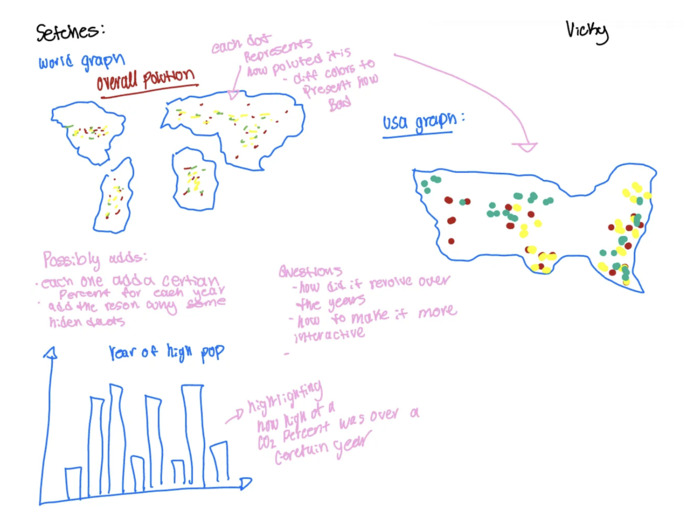 Setches:
Vicky
world graph
overall polution
each dot
Represents
how poluted it is
- diff colors to
Present how
Bad
usa graph:
Possibly adds:
· each one add a certian
Percent for each year
· add the reson any some
hiden facts
Questions
- how did it revolve over
the years
- how to make it more
interactive
-
Year of high pop
highlighting
how high of a
CO2 Percent was over a
year